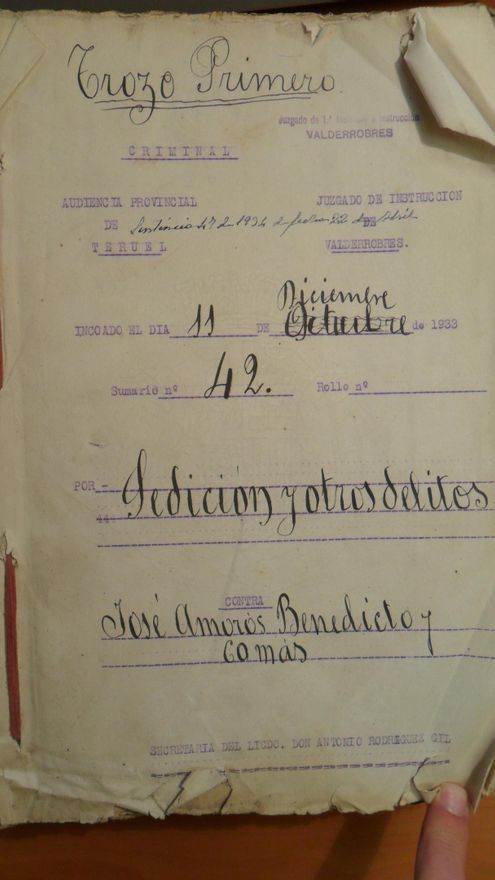 Trozo Primero.
Juzgado de 1.ª Instancia e Instrucción
VALDERROBRES
CRIMINAL
AUDIENCIA PROVINCIAL
DE
TERUEL
JUZGADO DE INSTRUCCION
DE
VALDERROBRES.
Sentencia 47 de 1934 de fecha 22 de Abril
INCOADO EL DIA 11 DE Diciembre Octubre de 1933
Sumario nº 42. Rollo nº
POR - Sedición y otros delitos
CONTRA
José Amorós Benedicto y
comás
SECRETARIA DEL LICDO. DON ANTONIO RODRIGUEZ GIL